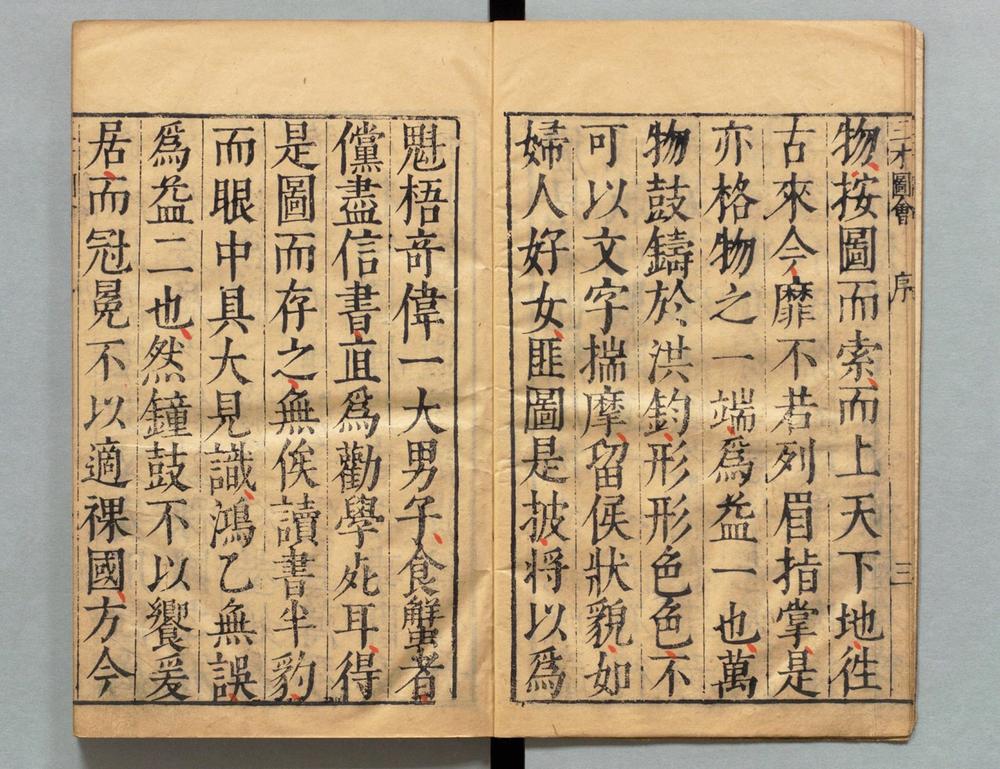 三才圖會 序 三
物按圖而索而上天下地往
古來今靡不若列眉指掌是
亦格物之一端爲益一也萬
物鼓鑄於洪鈞形形色色不
可以文字揣摩留侯狀貌如
婦人好女匪圖是披將以爲
魁梧竒偉一大男子食蟹者
儻盡信書直爲勸學死耳得
是圖而存之無俟讀書半豹
而眼中具大見識鴻乙無誤
爲益二也然鐘鼓不以饗爰
居而冠冕不以適裸國方今